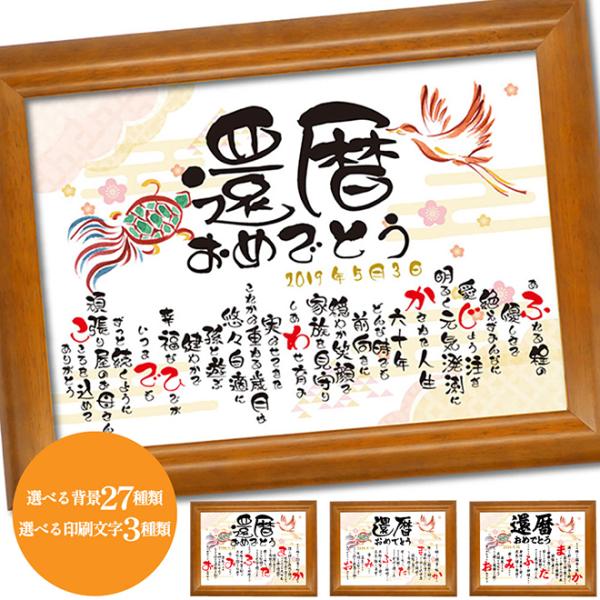 還暦
おめでとう
2019年5月3日
あふれる程の
優しさで
絶えずみんなに
愛じょう注ぎ
明るく元気溌溂に
かさねた人生
六十年
どんな時でも
前向きに
穏やか笑顔で
家族を見守り
しあわせ育み
実らせてきた
重なる歳月
悠々自適に
孫と遊び
健やかで
幸福なひびが
いつまでも
ずっと続くように
頑張り屋のお母さん
こころを込めて
ありがとう
選べる背景27種類
選べる印刷文字3種類
還暦
おめでとう
還暦
おめでとう
還暦
おめでとう